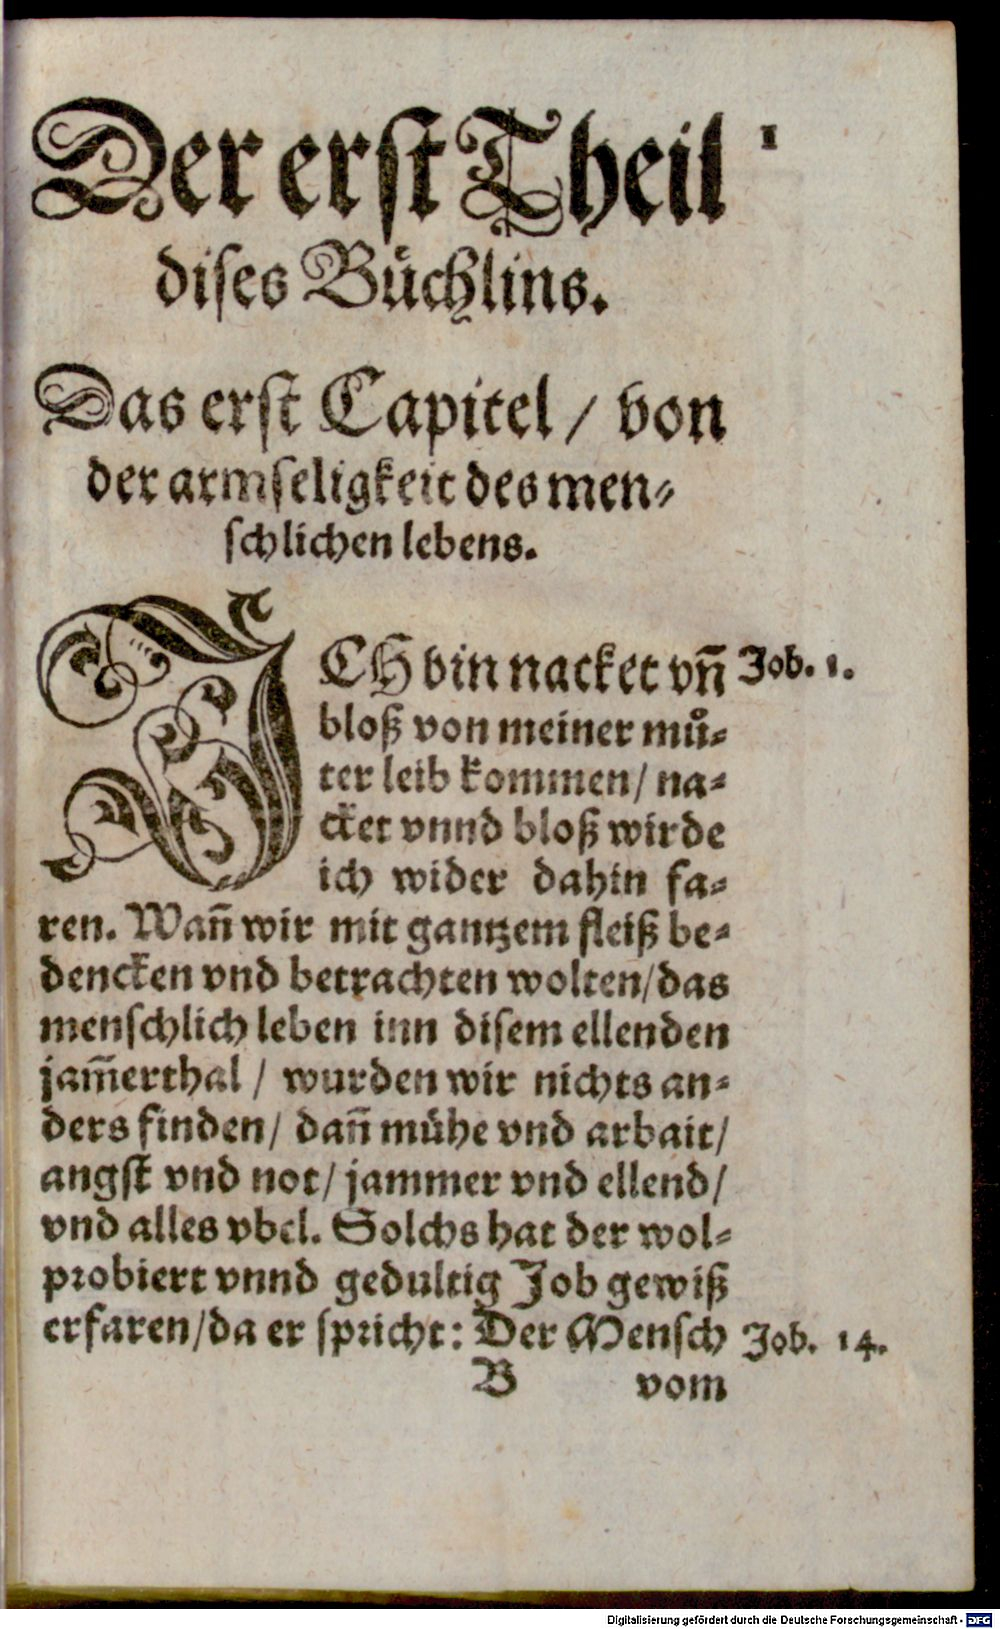 Der erst Theil 1
dises Büchlins.
Das erst Capitel / von
der armseligkeit des men-
schlichen lebens.
ICH bin nacket vñ Job. 1.
bloß von meiner mů-
ter leib kommen / na-
cket vnnd bloß wirde
ich wider dahin fa-
ren. Wañ wir mit gantzem fleiß be-
dencken vnd betrachten wolten / das
menschlich leben inn disem ellenden
jam̃erthal / wurden wir nichts an-
ders finden / dañ mühe vnd arbait /
angst vnd not / jammer vnd ellend /
vnd alles vbel. Solchs hat der wol-
probiert vnnd gedultig Job gewiß
erfaren / da er spricht: Der Mensch Job. 14.
B vom
Digitalisierung gefördert durch die Deutsche Forschungsgemeinschaft - DFG